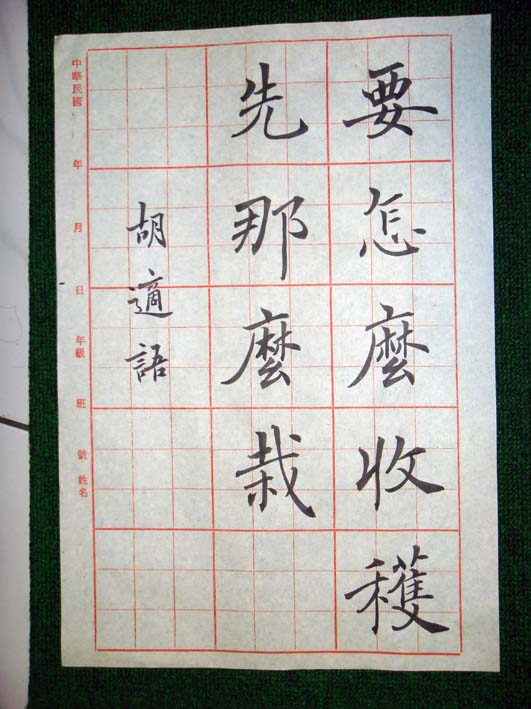 要怎麼收穫
先那麼栽
胡適語
中華民國 年 月 日 年級 班 號 姓名